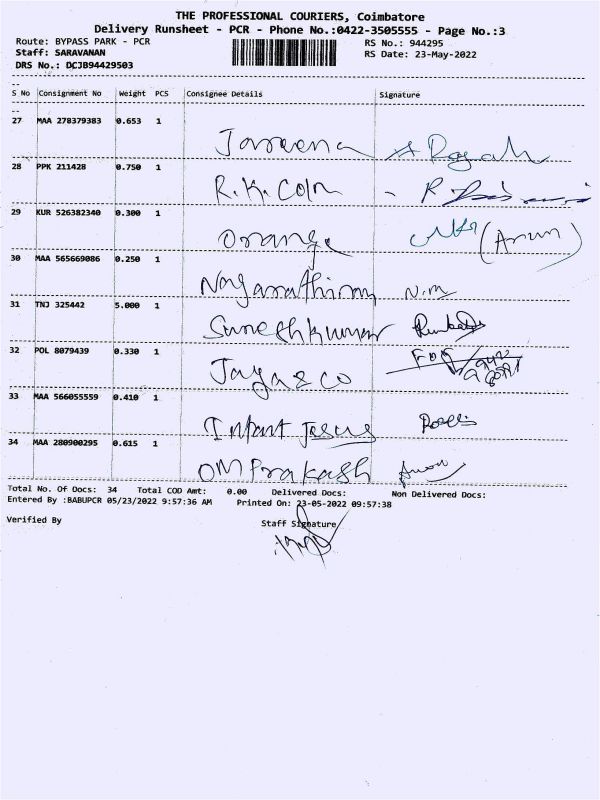 THE PROFESSIONAL COURIERS, Coimbatore
Delivery Runsheet - PCR - Phone No.:0422-3505555 - Page No.:3
Route: BYPASS PARK - PCR RS No.: 944295
Staff: SARAVANAN RS Date: 23-May-2022
DRS No.: DCJB94429503
S No Consignment No Weight PCS Consignee Details Signature
27 MAA 278379383 0.653 1
Jasreena Rajah
28 PPK 211428 0.750 1
R.K. Coln - R
29 KUR 526382340 0.300 1
Orange (Arun)
30 MAA 565669086 0.250 1
Nagarathinam N.m
31 TNJ 325442 5.000 1
Sureshkumar
32 POL 8079439 0.330 1
Jaya & co
33 MAA 566055559 0.410 1
Infant Jesus
34 MAA 280900295 0.615 1
OM Prakash
Total No. Of Docs: 34 Total COD Amt: 0.00 Delivered Docs: Non Delivered Docs:
Entered By :BABUPCR 05/23/2022 9:57:36 AM Printed On: 23-05-2022 09:57:38
Verified By Staff Signature